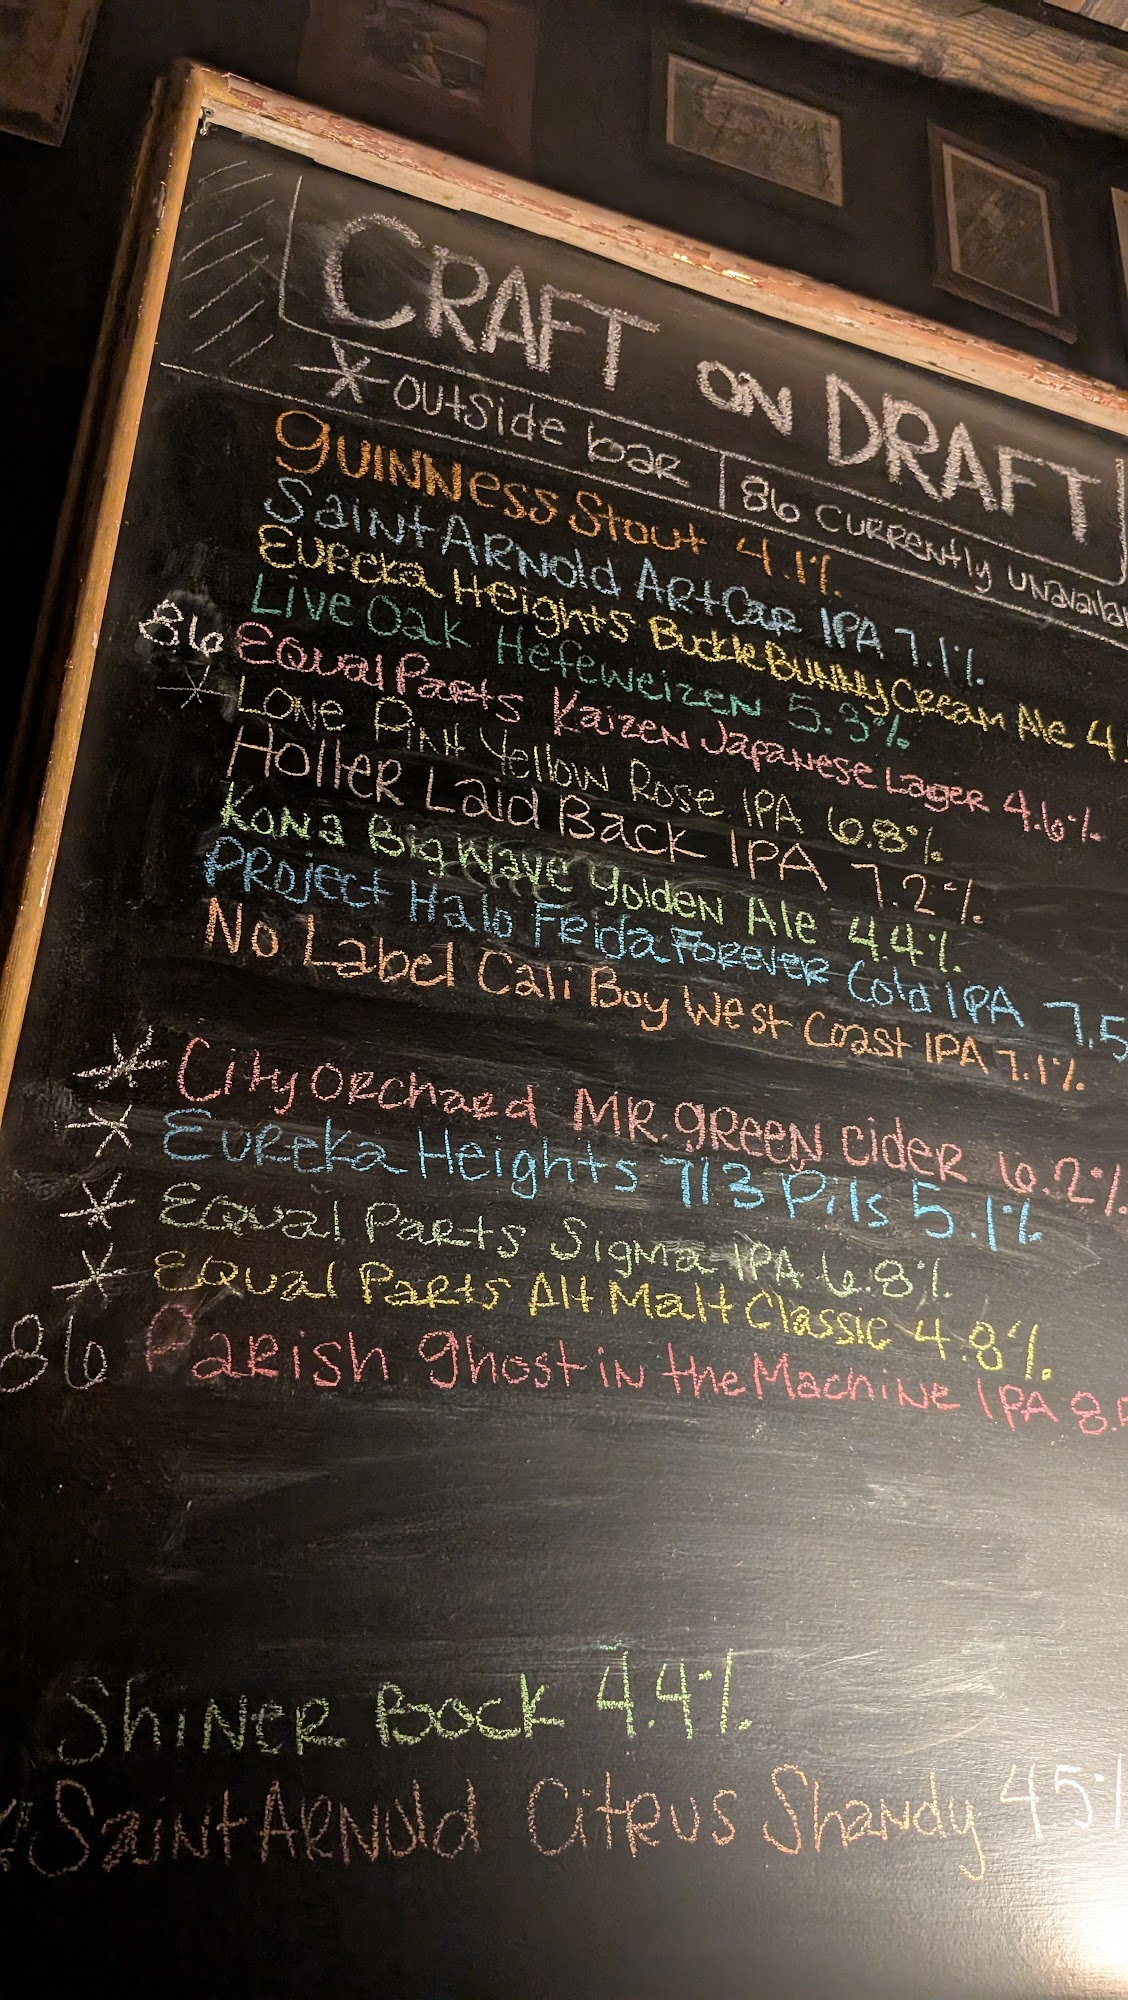 CRAFT ON DRAFT
* outside bar | 86 currently unavaila
Guinness Stout 4.1%
Saint Arnold Art Car IPA 7.1%
Eureka Heights Buckle Bunny Cream Ale 4
Live Oak Hefeweizen 5.3%
86 Equal Parts Kaizen Japanese Lager 4.6%
* Lone Pint Yellow Rose IPA 6.8%
Holler Laid Back IPA 7.2%
Kona Big Wave Golden Ale 4.4%
Project Halo Feida Forever Cold IPA 7.5
No Label Cali Boy West Coast IPA 7.1%
* City Orchard Mr. Green Cider 6.2%
* Eureka Heights 713 Pils 5.1%
* Equal Parts Sigma IPA 6.8%
* Equal Parts Alt Malt Classic 4.8%
86 Parish Ghost in the Machine IPA 8.
Shiner Bock 4.4%
Saint Arnold Citrus Shandy 4.5%